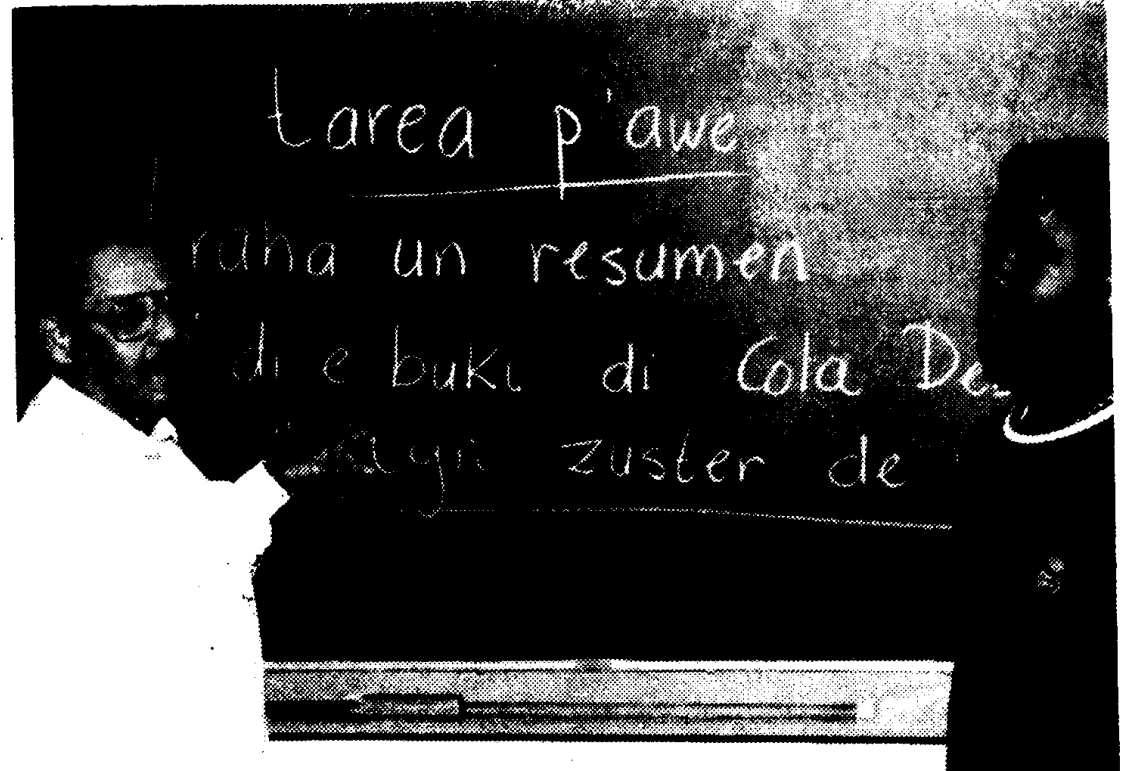 tarea p'awe
raha un resumen
di e buki di Cola De
zuster de